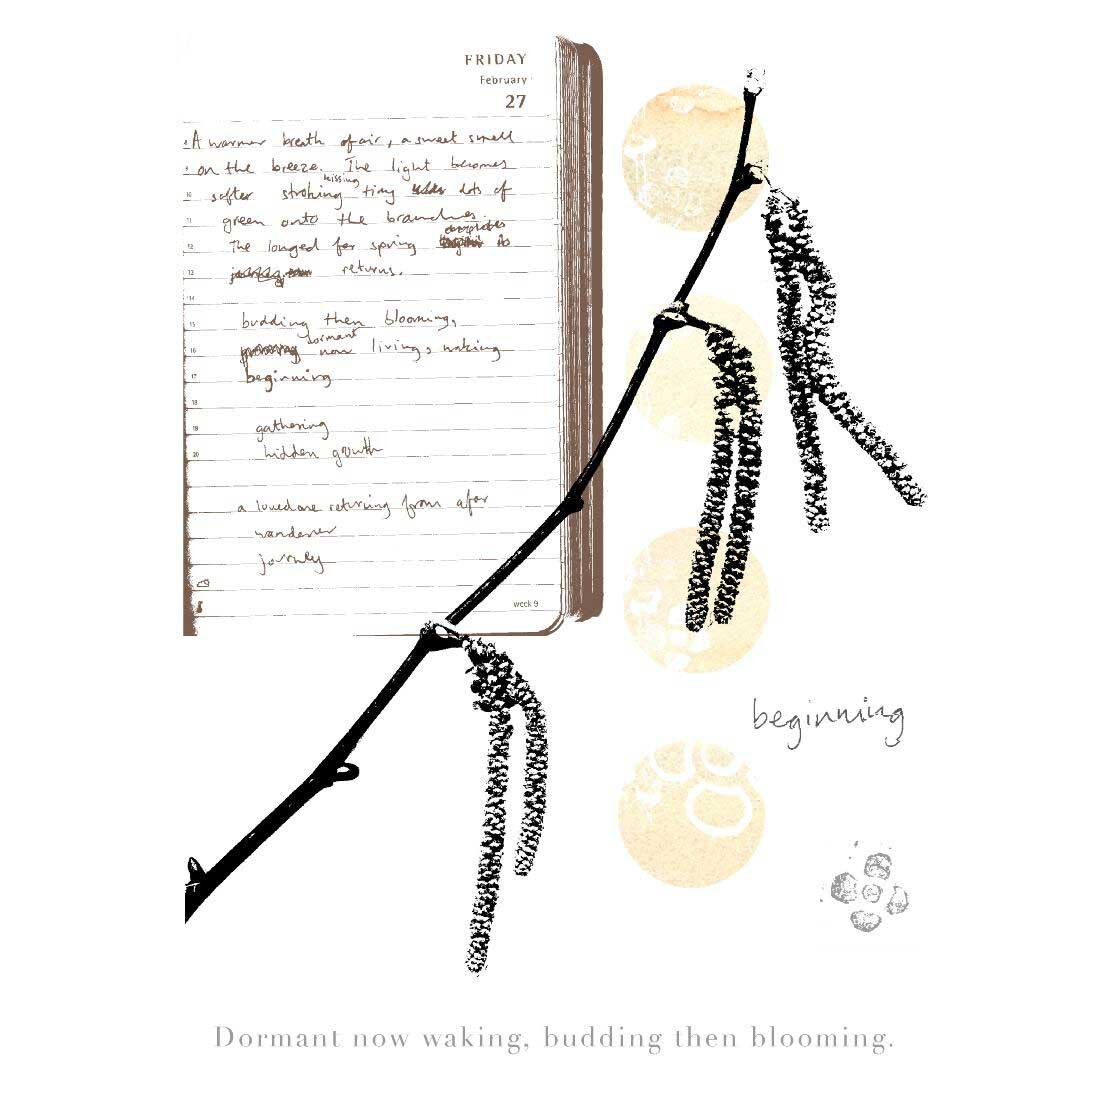 FRIDAY
February
27
A warmer breath of air, a sweet smell
9 on the breeze. The light becomes
kissing
10 softer stroking tiny dots of
11 green onto the branches
12 The longed for spring
13 returns.
14
15 budding then blooming,
dormant
16 now living, waking
17 beginning
18
19 gathering
20 hidden growth
a loved one returning from afar
wanderer
journey
week 9
beginning
Dormant now waking, budding then blooming.